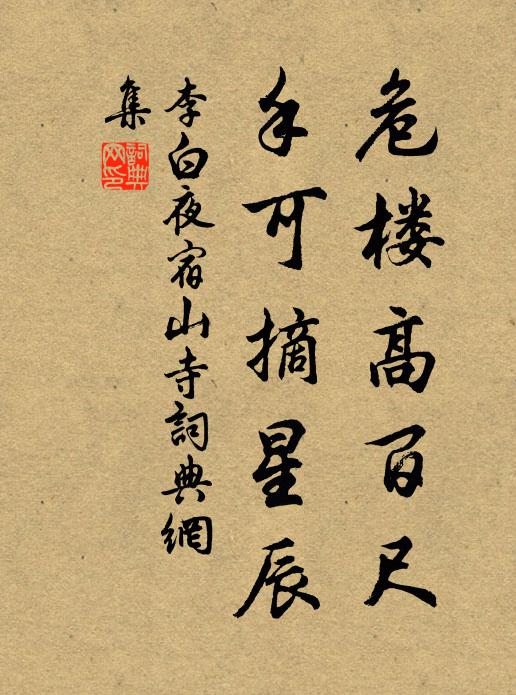 危楼高百尺
手可摘星辰
李白夜宿山寺詞典網
集
詞典
网印